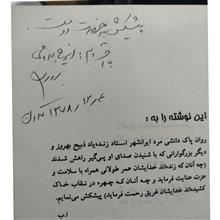 پیشکش به حضرت دوست
با احترام:
این نوشته را به:
روان پاک دانشی مرد ایرانشهر استاد زنده‌یاد ذبیح بهروز و
دیگر بزرگوارانی که با شنیدن صدای او پی‌گیر راهش شدند
(چه آنان که زنده‌اند خدایشان عمر طولانی همراه با سلامت و
عزت عنایت فرماید و چه آنان که چهره در نقاب خاک
کشیده‌اند خدایشان غریق رحمت فرماید) پیشکش می‌نمایم.
ا.ب